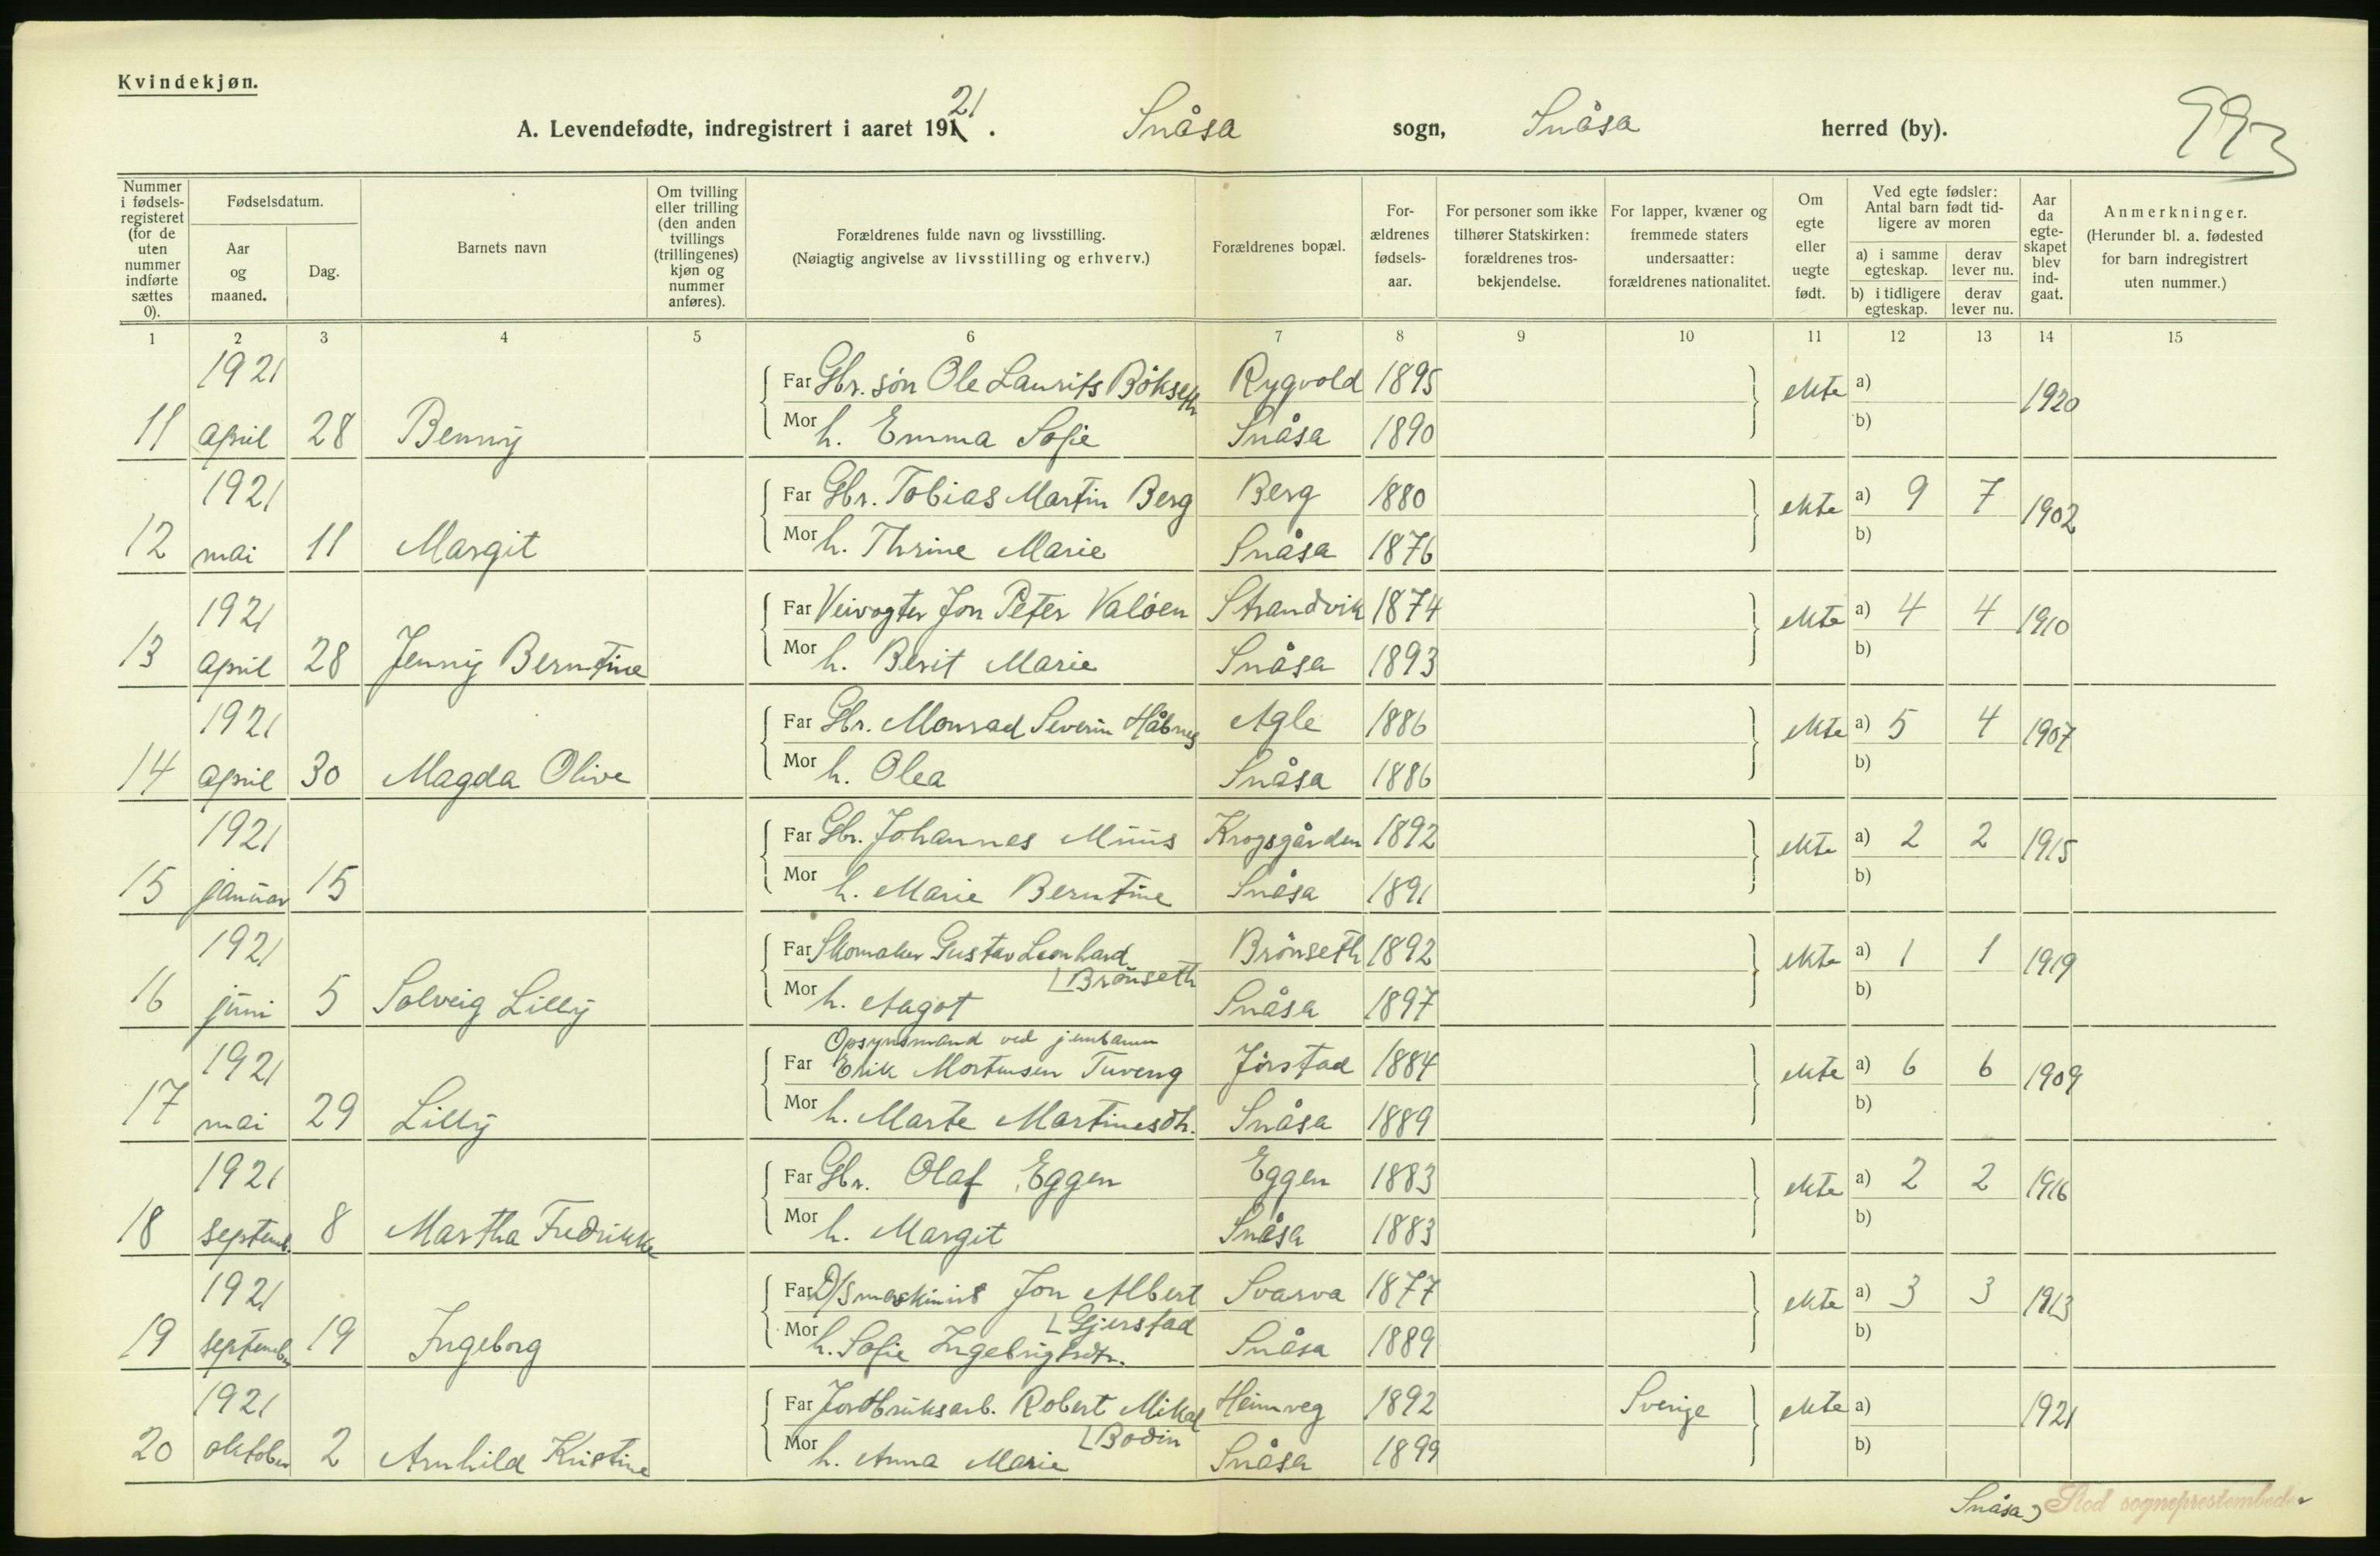 Kvindekjøn.
A. Levendefødte, indregistrert i aaret 1921. Snåsa sogn, Snåsa herred (by).
993
Nummer i fødsels-registeret (for de uten nummer indførte sættes 0).
Fødselsdatum.
Aar og maaned.
Dag.
Barnets navn
Om tvilling eller trilling (den anden tvillings (trillingenes) kjøn og nummer anføres).
Forældrenes fulde navn og livsstilling.
(Nøiagtig angivelse av livsstilling og erhverv.)
Forældrenes bopæl.
For-ældrenes fødsels-aar.
For personer som ikke tilhører Statskirken: forældrenes tros-bekjendelse.
For lapper, kvæner og fremmede staters undersaatter: forældrenes nationalitet.
Om egte eller uegte født.
Ved egte fødsler: Antal barn født tid-ligere av moren
a) i samme egteskap.
derav lever nu.
b) i tidligere egteskap.
derav lever nu.
Aar da egte-skapet blev ind-gaat.
Anmerkninger.
(Herunder bl. a. fødested for barn indregistrert uten nummer.)
1 2 3 4 5 6 7 8 9 10 11 12 13 14 15
1921 Far Gbr. søn Ole Laurits Bökseth Rygvold 1895 ekte a) 1920
11 april 28 Benny Mor h. Emma Sofie Snåsa 1890 b)
1921 Far Gbr. Tobias Martin Berg Berg 1880 ekte a) 9 7 1902
12 mai 11 Margit Mor h. Thrine Marie Snåsa 1876 b)
1921 Far Veivogter Jon Peter Valöen Strandvik 1874 ekte a) 4 4 1910
13 april 28 Jenny Berntine Mor h. Berit Marie Snåsa 1893 b)
1921 Far Gbr. Monrad Severin Håbnes Agle 1886 ekte a) 5 4 1907
14 april 30 Magda Olive Mor h. Olea Snåsa 1886 b)
1921 Far Gbr. Johannes Muus Krogsgården 1892 ekte a) 2 2 1915
15 januar 15 Mor h. Marie Berntine Snåsa 1891 b)
1921 Far Skomaker Gustav Leonhard Brönseth Brönseth 1892 ekte a) 1 1 1919
16 juni 5 Solveig Lilly Mor h. Aagot Snåsa 1897 b)
Opsynsmand ved jernbanen
1921 Far Erik Mortensen Tuveng Jörstad 1884 ekte a) 6 6 1909
17 mai 29 Lilly Mor h. Marte Martinesdtr. Snåsa 1889 b)
1921 Far Gbr. Olaf Eggen Eggen 1883 ekte a) 2 2 1916
18 septemb. 8 Martha Fredrikke Mor h. Margit Snåsa 1883 b)
1921 Far D/S maskinist Jon Albert Gjerstad Svarva 1877 ekte a) 3 3 1913
19 september 19 Ingeborg Mor h. Sofie Ingebrigtsdtr. Snåsa 1889 b)
1921 Far Jordbruksarb. Robert Mikal Bodin Heimveg 1892 Sverige ekte a) 1921
20 oktober 2 Arnhild Kristine Mor h. Anna Marie Snåsa 1899 b)
Snåsa, Stod sogneprestembede